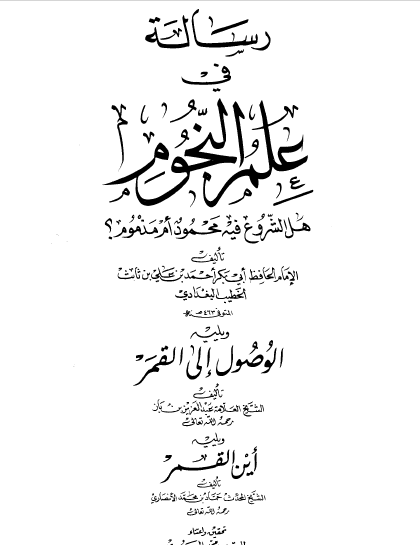 رسالة
في
علم النجوم
هل الشروع فيه محمود أم مذموم؟
تأليف
الإمام الحافظ أبي بكر أحمد بن علي بن ثابت
الخطيب البغدادي
المتوفى ٤٦٣ هـ
ويليه
الوصول إلى القمر
تأليف
الشيخ العلامة عبد العزيز بن باز
رحمه الله تعالى
ويليه
أين القمر
تأليف
الشيخ المحدث حماد بن محمد الأنصاري
رحمه الله تعالى
تحقيق واعتناء